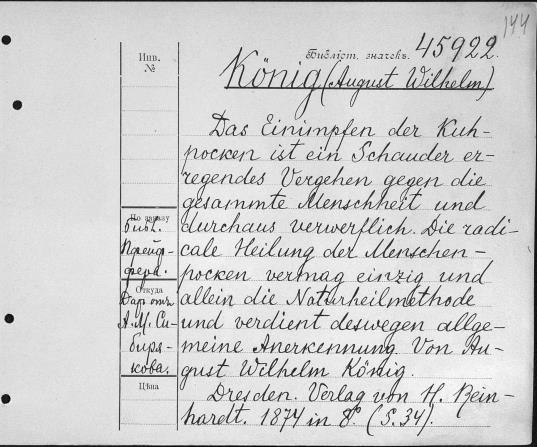 144
Инв.
№
Библіот. значекъ.
45922.
König (August Wilhelm)
Das Einimpfen der Kuh-
pocken ist ein Schauder er-
regendes Vergehen gegen die
gesammte Menschheit und
durchaus verwerflich. Die radi-
cale Heilung der Menschen-
pocken vermag einzig und
allein die Naturheilmethode
und verdient deswegen allge-
meine Anerkennung. Von Au-
gust Wilhelm König.
Dresden. Verlag von H. Rein-
hardt. 1874 in 8º. (S. 34).
По заказу
библ.
Откуда
Даръ отъ
А. М. Си-
биря-
кова.
Цѣна